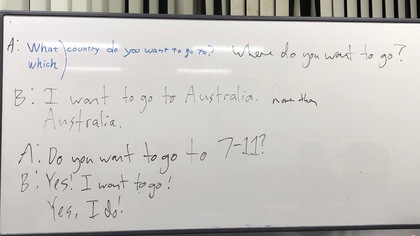 A: What country do you want to go to? Where do you want to go?
which
B: I want to go to Australia. more than
Australia.
A: Do you want to go to 7-11?
B: Yes! I want to go!
Yes, I do!